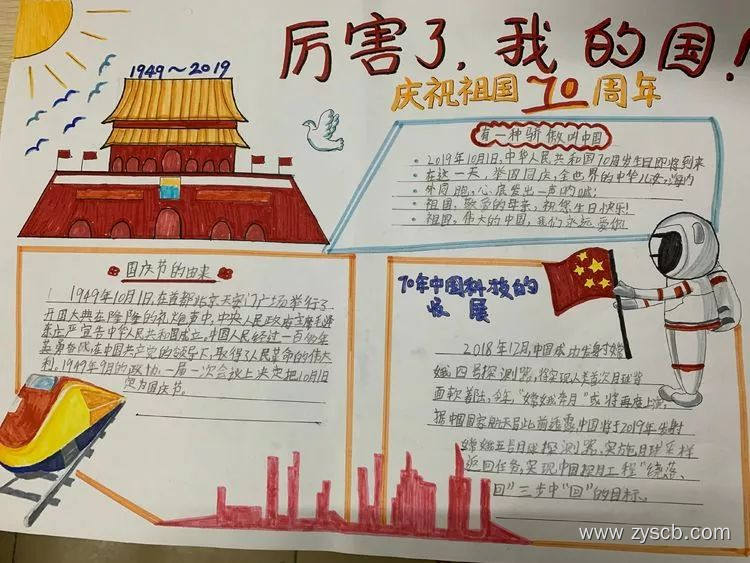 厉害了,我的国!
庆祝祖国70周年
1949~2019
有一种骄傲叫中国
2019年10月1日,中华人民共和国70周岁生日即将到来
在这一天,举国同庆,全世界的中华儿女,海内
外同胞,心底发出一声呐喊:
祖国,敬爱的母亲,祝您生日快乐!
祖国,伟大的中国,我们永远爱你!
国庆节的由来
1949年10月1日,在首都北京天安门广场举行了
开国大典,在隆隆的礼炮声中,中央人民政府主席毛泽
东庄严宣告中华人民共和国成立。中国人民经过一百多年
英勇奋战,在中国共产党的领导下,取得了人民革命的伟大
利。1949年9月的政协一届一次会议上决定把10月1日
定为国庆节。
70年中国科技的
发展
2018年12月,中国成功发射嫦
娥四号探测器,将实现人类首次月球背
面软着陆,今年,"嫦娥奔月"或将再度上演,
据中国国家航天局此前透露,中国将于2019年发射
嫦娥五号月球探测器,实施月球采样
返回任务,实现中国探月工程"绕、落、
回"三步中"回"的目标。
www.zyscb.com